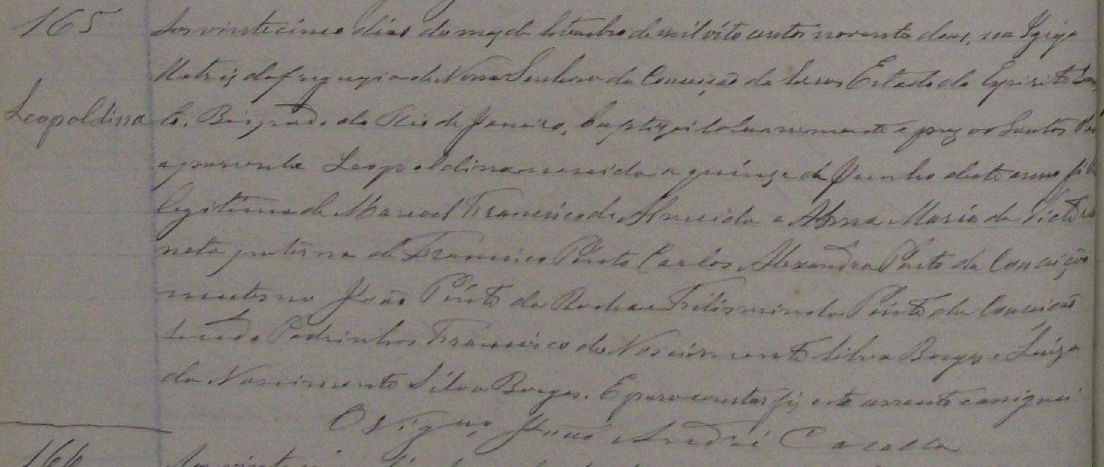 165
Aos vinte cinco dias do mez de Setembro de mil oito centos noventa dous, na Igreja
Matriz da freguezia de Nossa Senhora da Conceição da Serra Estado do Espirito San
Leopoldina
to, Bispado do Rio de Janeiro, baptizei solemnemente e puz os Santos
a parvula Leopoldina nascida a quinze de Junho deste anno filha
legitima de Manoel Francisco de Almeida e Anna Maria da Victoria
neta paterna de Francisco Pinto Carlos Alexandra Pinto da Conceição
materna João Pinto da Rocha e Filismina Pinto da Conceição
sendo Padrinhos Francisco do Nascimento Silva Borges e Luiza
do Nascimento Silva Borges. E para constar fiz este assento e assignei.
O Vigro João André Casella
166
Aos vinte